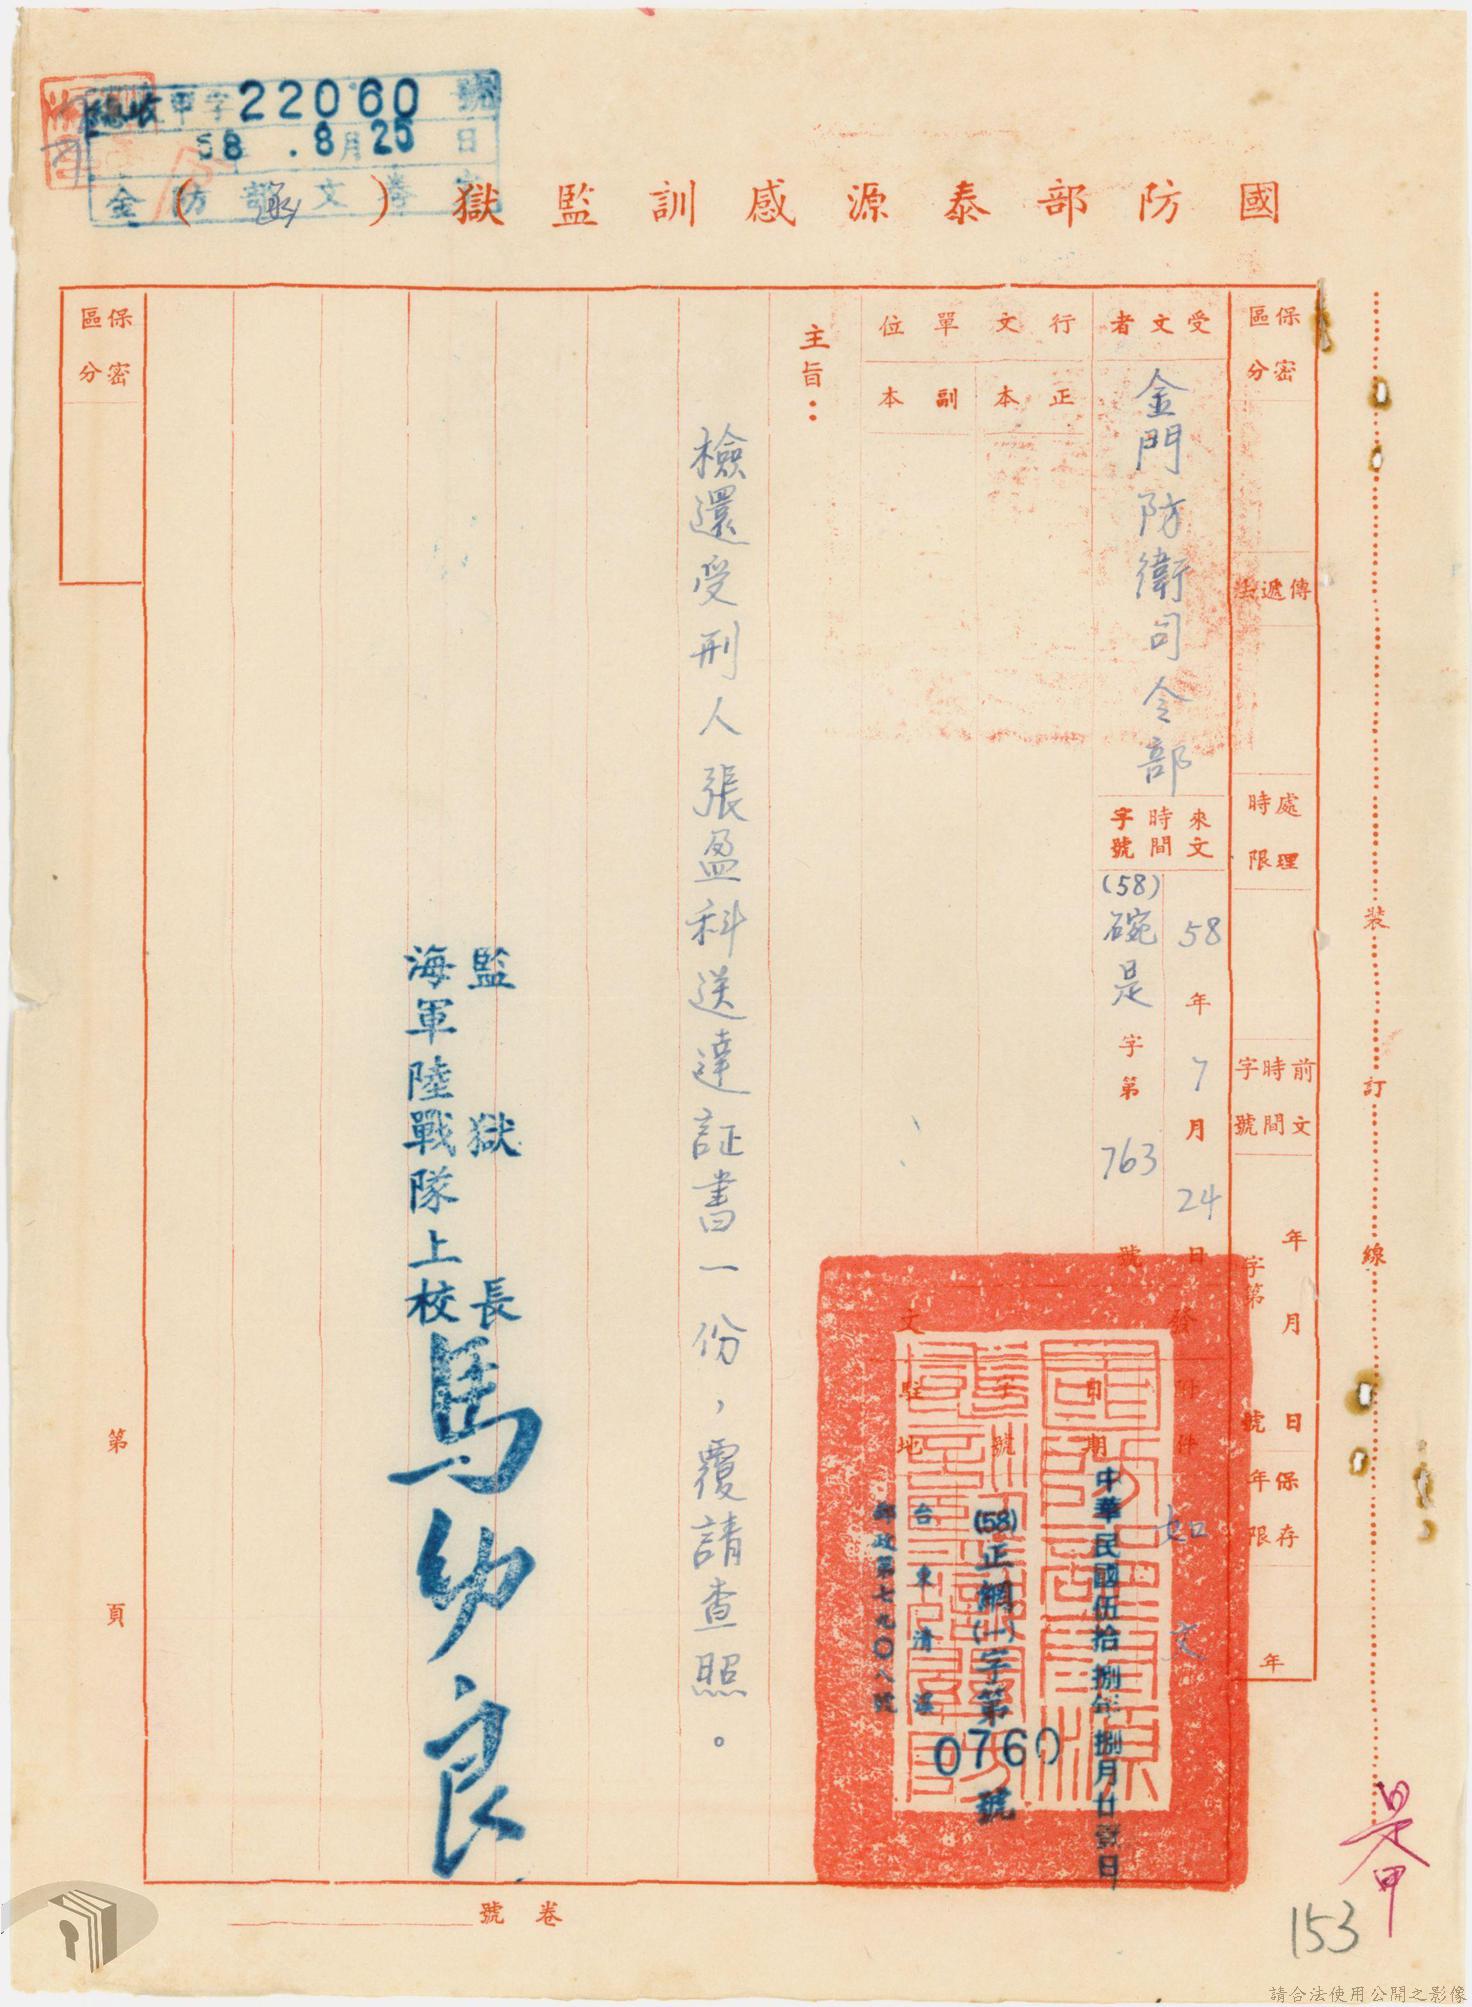 總收甲字22060號
58年.8月25日
金防部文卷室
國防部泰源感訓監獄(函)
保密區分
傳遞法
處理時限
前文時間字號
年月日
字第號
保存年限
年
受文者
金門防衛司令部
來文時間字號
58年7月24日
(58)碗是字第763號
行文單位
正本
副本
發文
附件
如文
日期
中華民國伍拾捌年捌月廿壹日
字號
(58)正網(一)字第0760號
駐地
台東清溪
郵政第七九〇八號
主旨：
檢還受刑人張盈科送達証書一份，覆請查照。
監獄長
海軍陸戰隊上校
馬幼良
保密區分
第頁
卷號
裝訂線
是甲
153
請合法使用公開之影像